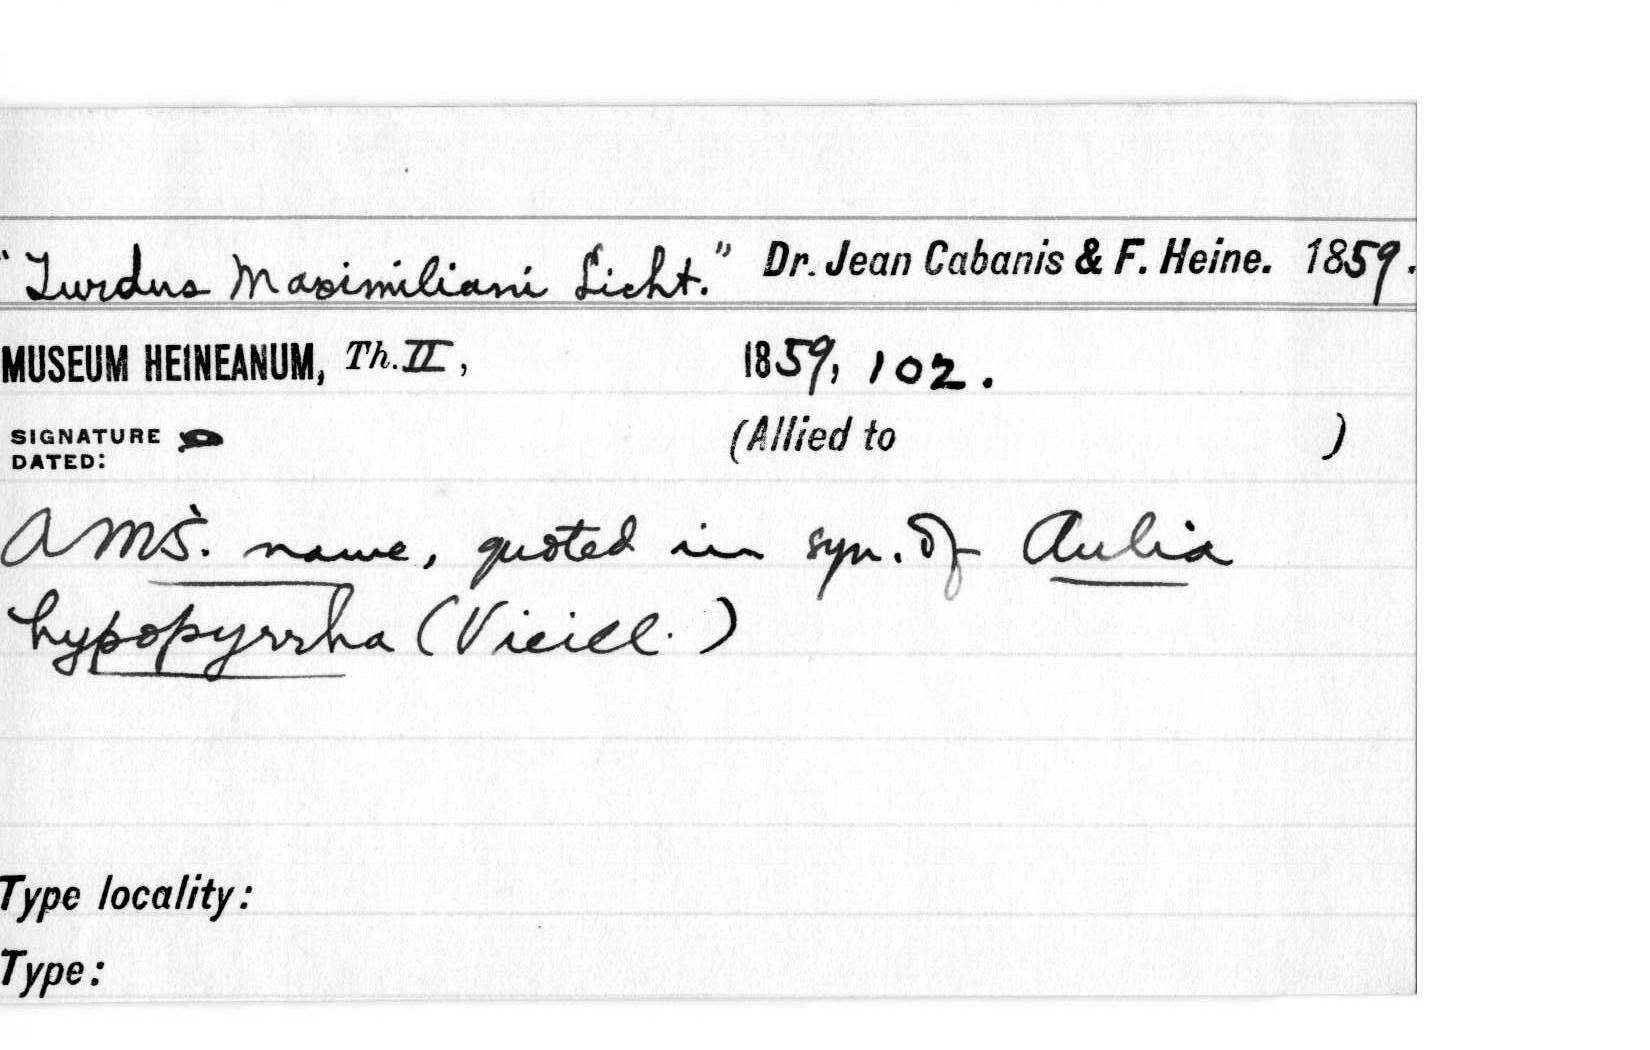 "Turdus Maximiliani Licht." Dr. Jean Cabanis & F. Heine. 1859.
MUSEUM HEINEANUM, Th. II, 1859, 102.
SIGNATURE
DATED:
(Allied to )
A MS. name, quoted in syn. of Aulia
hypopyrrha (Vieill.)
Type locality:
Type: